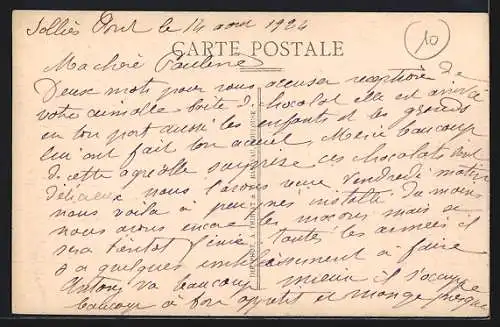 Solliès Pont le 14 aout 1924
10
CARTE POSTALE
Ma chère Pauline
Deux mots pour vous accuser reception de
votre aimable boite d chocolat elle est arrivé
en bon port aussi les enfants et les grands
lui ont fait bon accueil Merci beaucoup
de cette agréable surprise ces chocolats sont
délicieux nous l'avons reçue Vendredi matin
nous voila à peu près installé du moins
nous avons encore les maçons mais se
sera bientot finie toutes les années il
y a quelques à faire
Antony va beaucoup mieux il s'occupe
beaucoup à bon appetit et mange presque